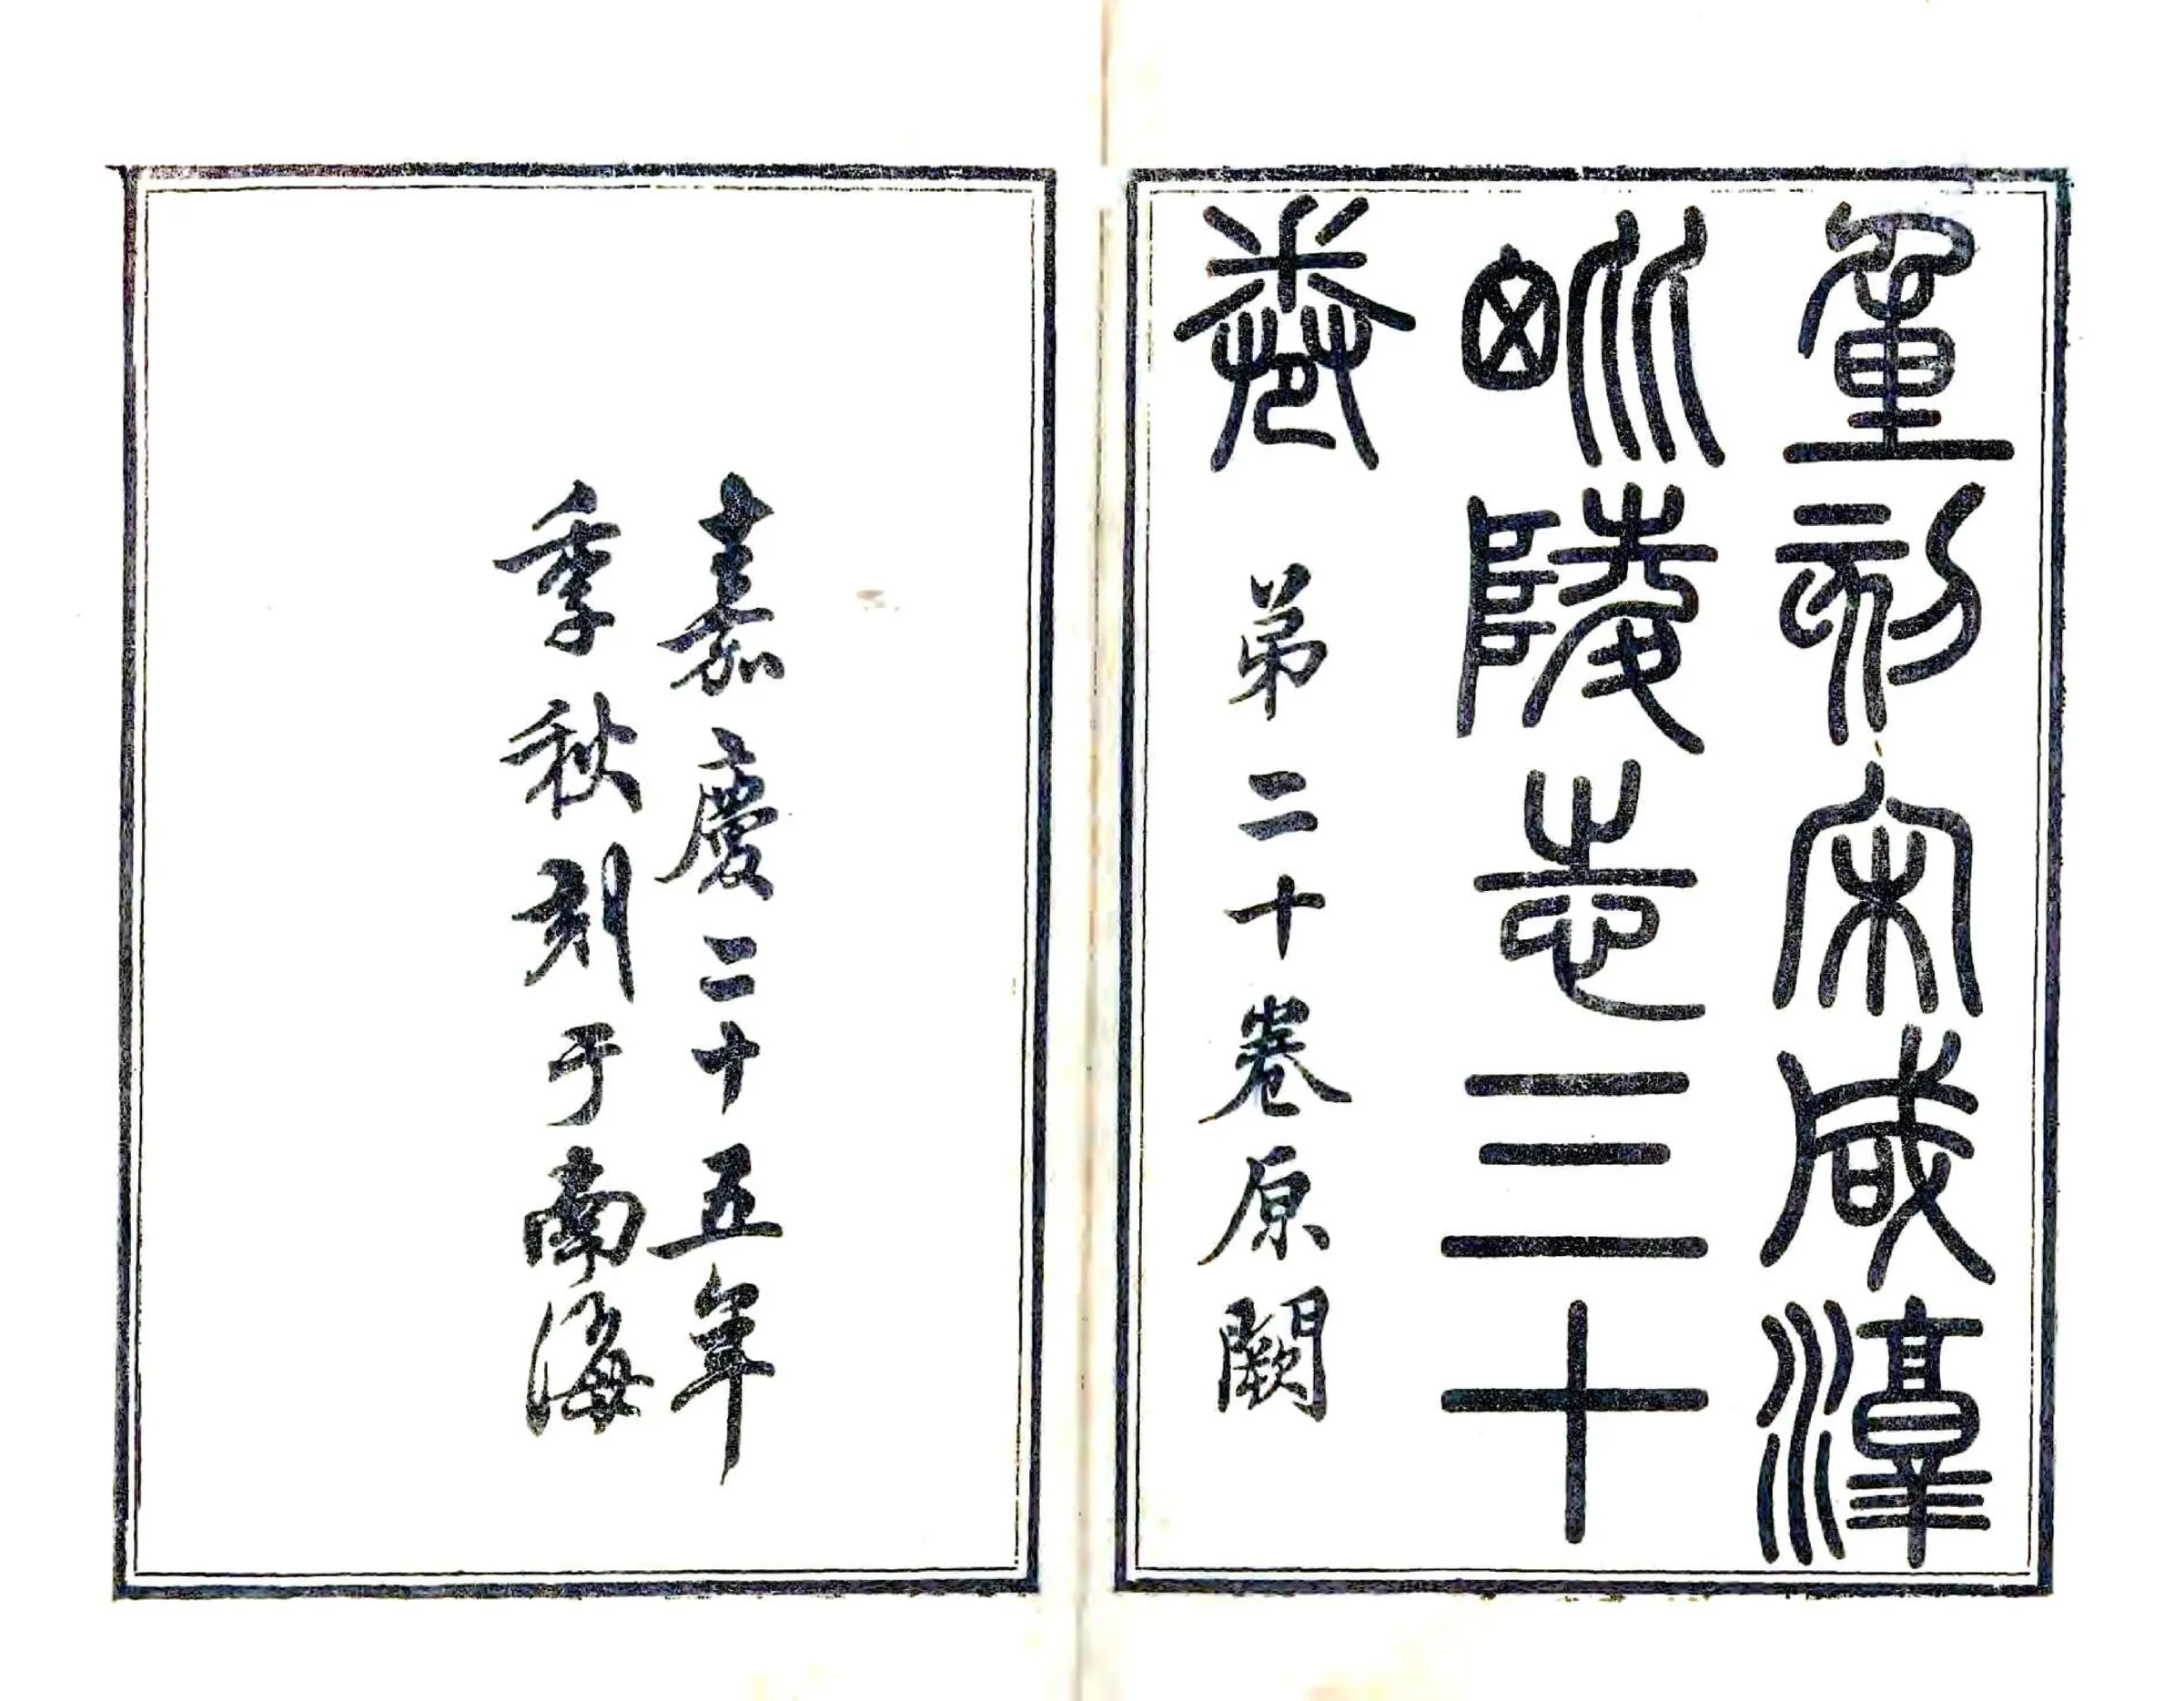 重刻宋咸淳
毗陵志三十
卷 弟二十卷原闕
嘉慶二十五年
季秋刻于南海